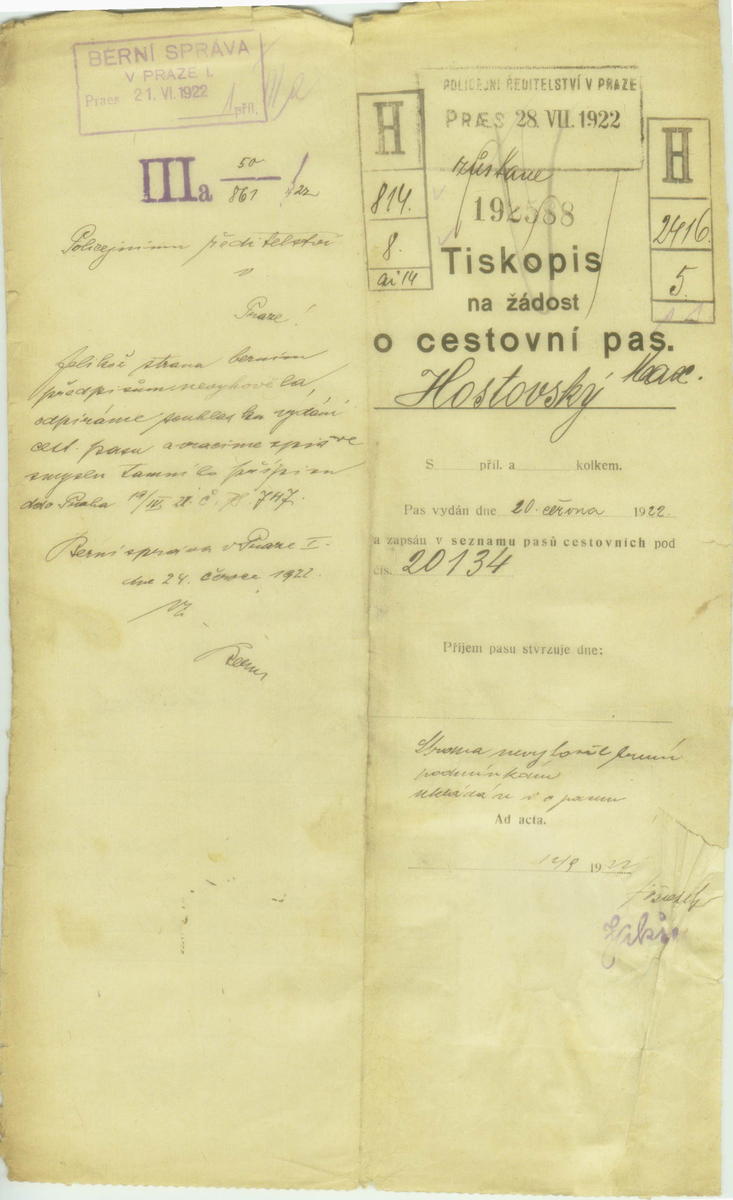 BERNÍ SPRÁVA
V PRAZE I.
Praes 21. VI. 1922
1 příl.
IIIa 50/861 1/22
Policejnímu ředitelství
v
Praze!
Jelikož strana berním
předpisům nevyhověla,
odpíráme souhlas ku vydání
cest. pasu a vracíme spis ve
smyslu tamního přípisu
dato Praha 19/IV. 21. Č. 747.
Berní správa v Praze I.
dne 24. července 1922.
POLICEJNÍ ŘEDITELSTVÍ V PRAZE
PRÆS 28. VII. 1922
zůstane
192588
H
814.
8.
ai 14
H
2416.
5.
Tiskopis
na žádost
o cestovní pas.
Hostovský Max.
S příl. a kolkem.
Pas vydán dne 20. června 1922.
a zapsán v seznamu pasů cestovních pod
čís. 20134
Příjem pasu stvrzuje dne:
Strana nevyhověla
podmínkám
Ad acta.
12/9 1922